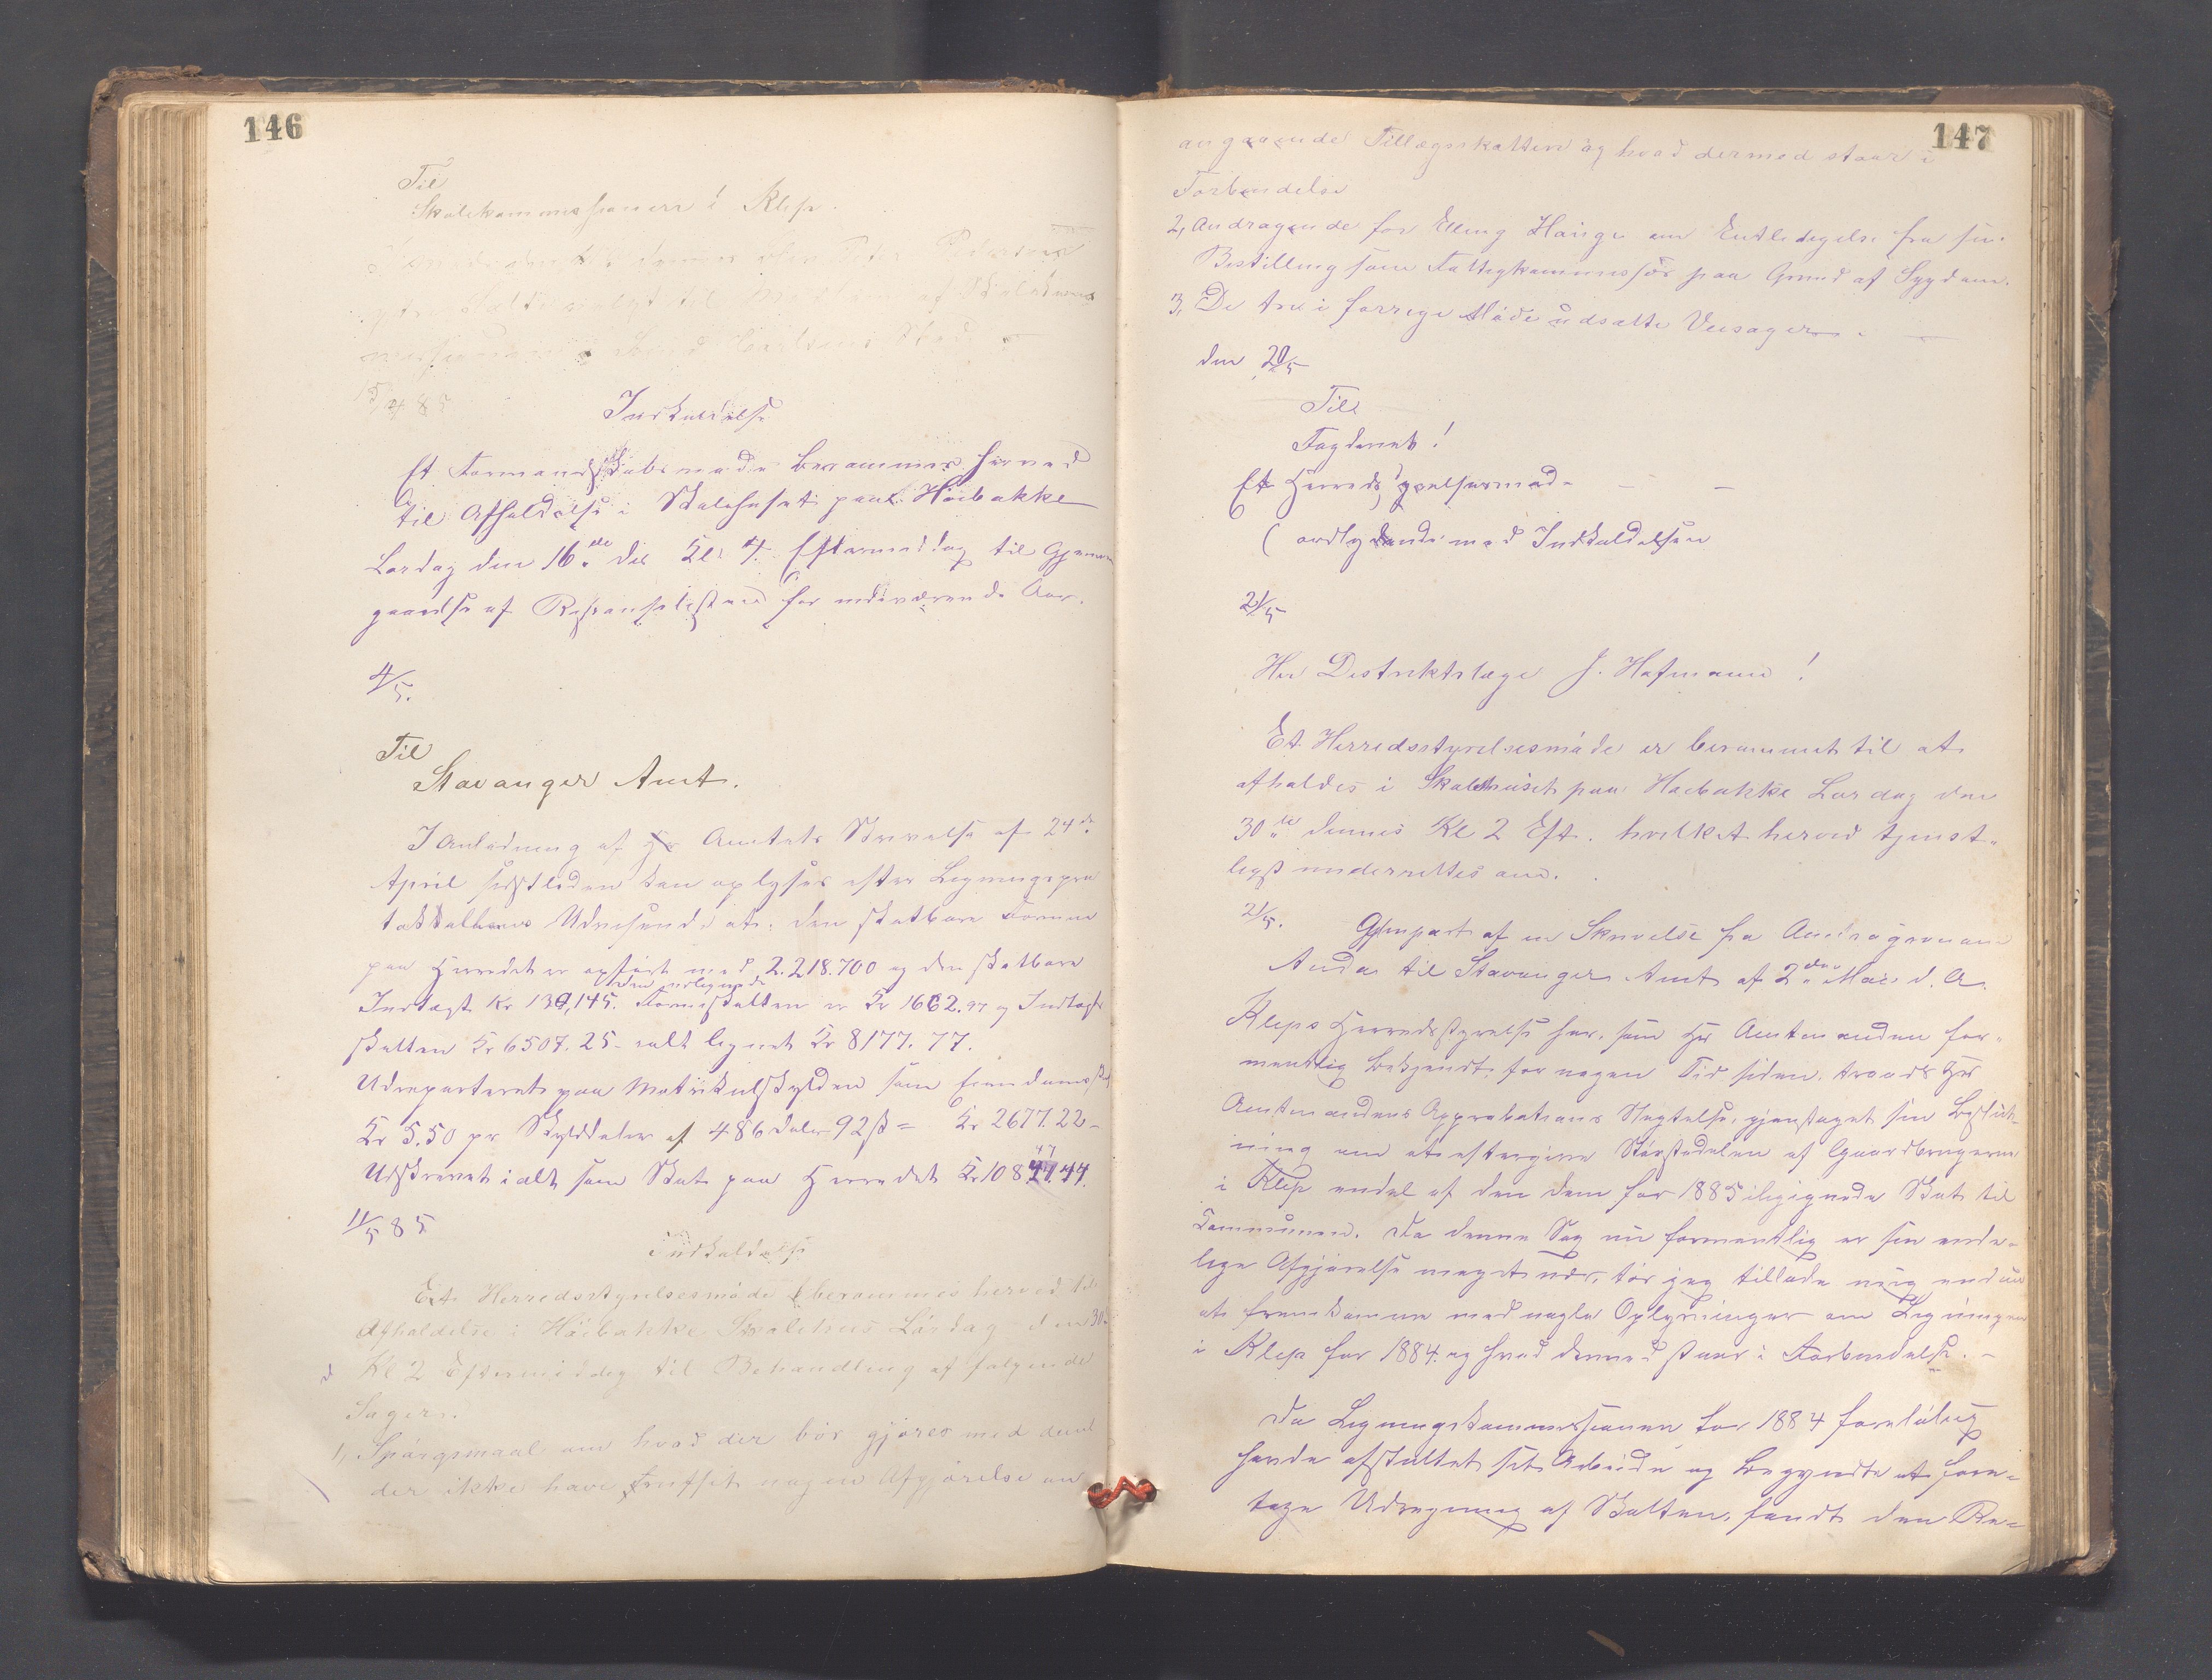 146
Til
Skolekommissionen i Klep.
15/4 85
Indkaldelse
Et Formandskabsmøde berammes herved
til Afholdelse i Skolehuset paa Høibakke
Lørdag den 16de ds Kl. 4 Eftermiddag til Gjennem
gaaelse af Restanselisten for indeværende Aar.
4/5.
Til
Stavanger Amt.
I Anledning af Hr Amtets Skrivelse af 24de
April sidstleden kan oplyses efter Ligningspro
tokollens Udvisende at: den skatbare Formue
paa Herredet er opført med 2.218.700 og den skatbare
Indtægt Kr 130,145. den udlignede Formueskatten er Kr 1662.97 og Indtægts
skatten Kr 6507.25 - ialt lignet Kr 8177.77.
Udreparteret paa Matrikulskylden som Eiendomsskat
Kr 5.50 pr. Skylddaler af 486 daler 92 ß = Kr 2677.22 -
Udskrevet ialt som Skat paa Herredet Kr 108 44.
11/5 85
Indkaldelse
Et Herredsstyrelsesmøde berammes herved til
Afholdelse i Høibakke Skolehus Lørdag den 30te
Kl 2 Eftermiddag til Behandling af følgende
Sager.
1, Spørgsmaal om hvad der bør gjøres med dem
der ikke have truffet nogen Afgjørelse an
147
angaaende Tillægsskatten og hvad dermed staar i
Forbindelse
2, Andragende for Elling Hauge om Entledigelse fra sin
Bestilling som Fattigkommissør paa Grund af Sygdom.
3, De tre i forrige Møde udsatte Veisager.
den 20/5
Til
Fogderiet!
Et Herredsstyrelsesmød - - -
( ordlydende med Indkaldelsen
21/5
Her Distriktslæge J. Hofmann!
Et Herredsstyrelsesmøde er berammet til at
afholdes i Skolehuset paa Høibakke Lørdag den
30te dennes Kl 2 Eft. hvilket herved tjenst-
ligst underrettes om.
21/5. Gjenpart af en Skrivelse fra
Anda til Stavanger Amt af 2den Mai d. A.
Kleps Herredsstyrelse har, som Hr Amtmanden for-
mentlig bekjendt for nogen Tid siden, trods Hr
Amtmandens Approbations Negtelse, gjentaget sin Beslut-
ning om at eftergive Størstedelen af Gaardbrugerne
i Klep endel af den dem for 1885 ilignede Skat til
Kommunen. Da denne Sag nu formentlig er sin ende-
lige Afgjørelse meget nær, tør jeg tillade mig endnu
at fremkomme med nogle Oplysninger om Ligningen
i Klep for 1884 og hvad dermed staar i Forbindelse. -
Da Ligningskommissionen for 1884 foreløbig
havde afsluttet sit Arbeide og begyndte at fore-
tage Udregning af Skatten, fandt den Re-